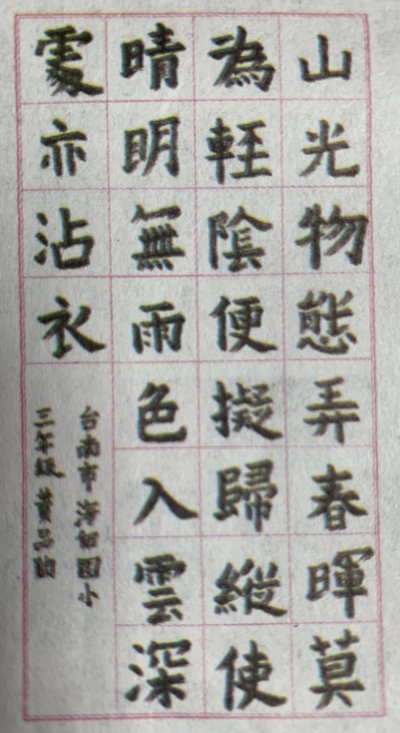 山光物態弄春暉莫
為輕陰便擬歸縱使
晴明無雨色入雲深
處亦沾衣
台南市海佃國小
三年級黃品昀